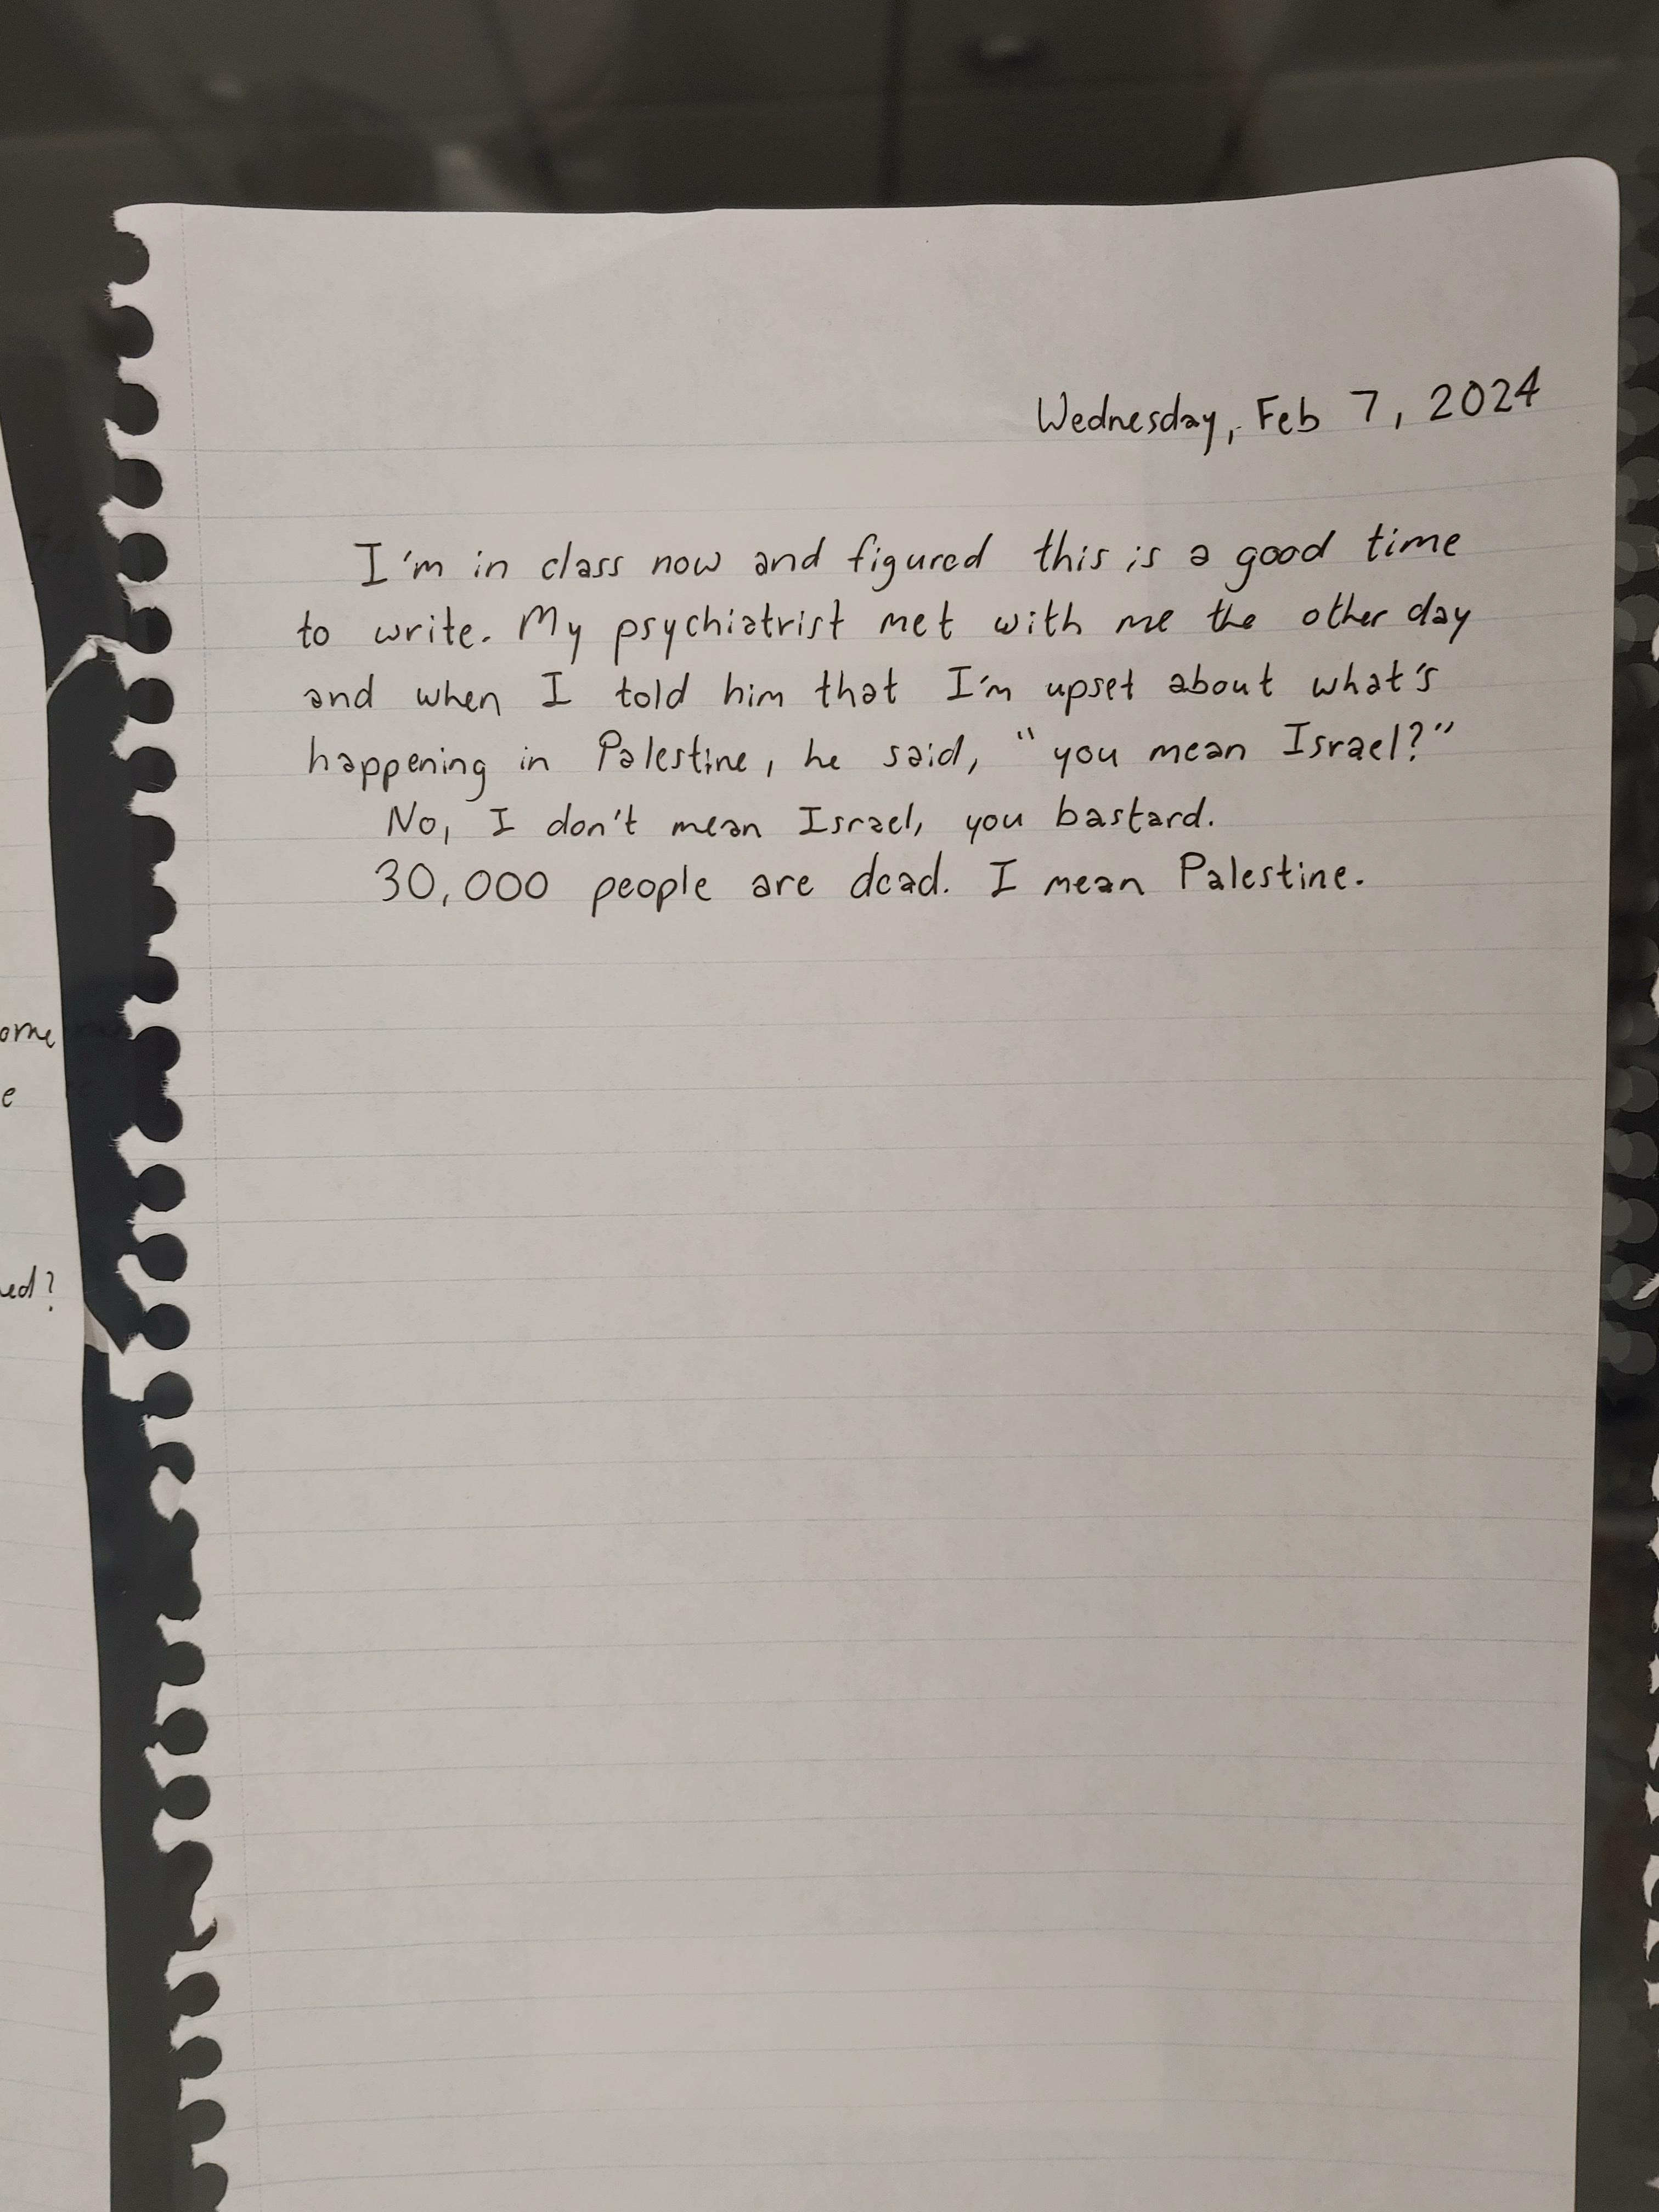 Wednesday, Feb 7, 2024
I'm in class now and figured this is a good time
to write. My psychiatrist met with me the other day
and when I told him that I'm upset about what's
happening in Palestine, he said, "you mean Israel?"
No, I don't mean Israel, you bastard.
30,000 people are dead. I mean Palestine.